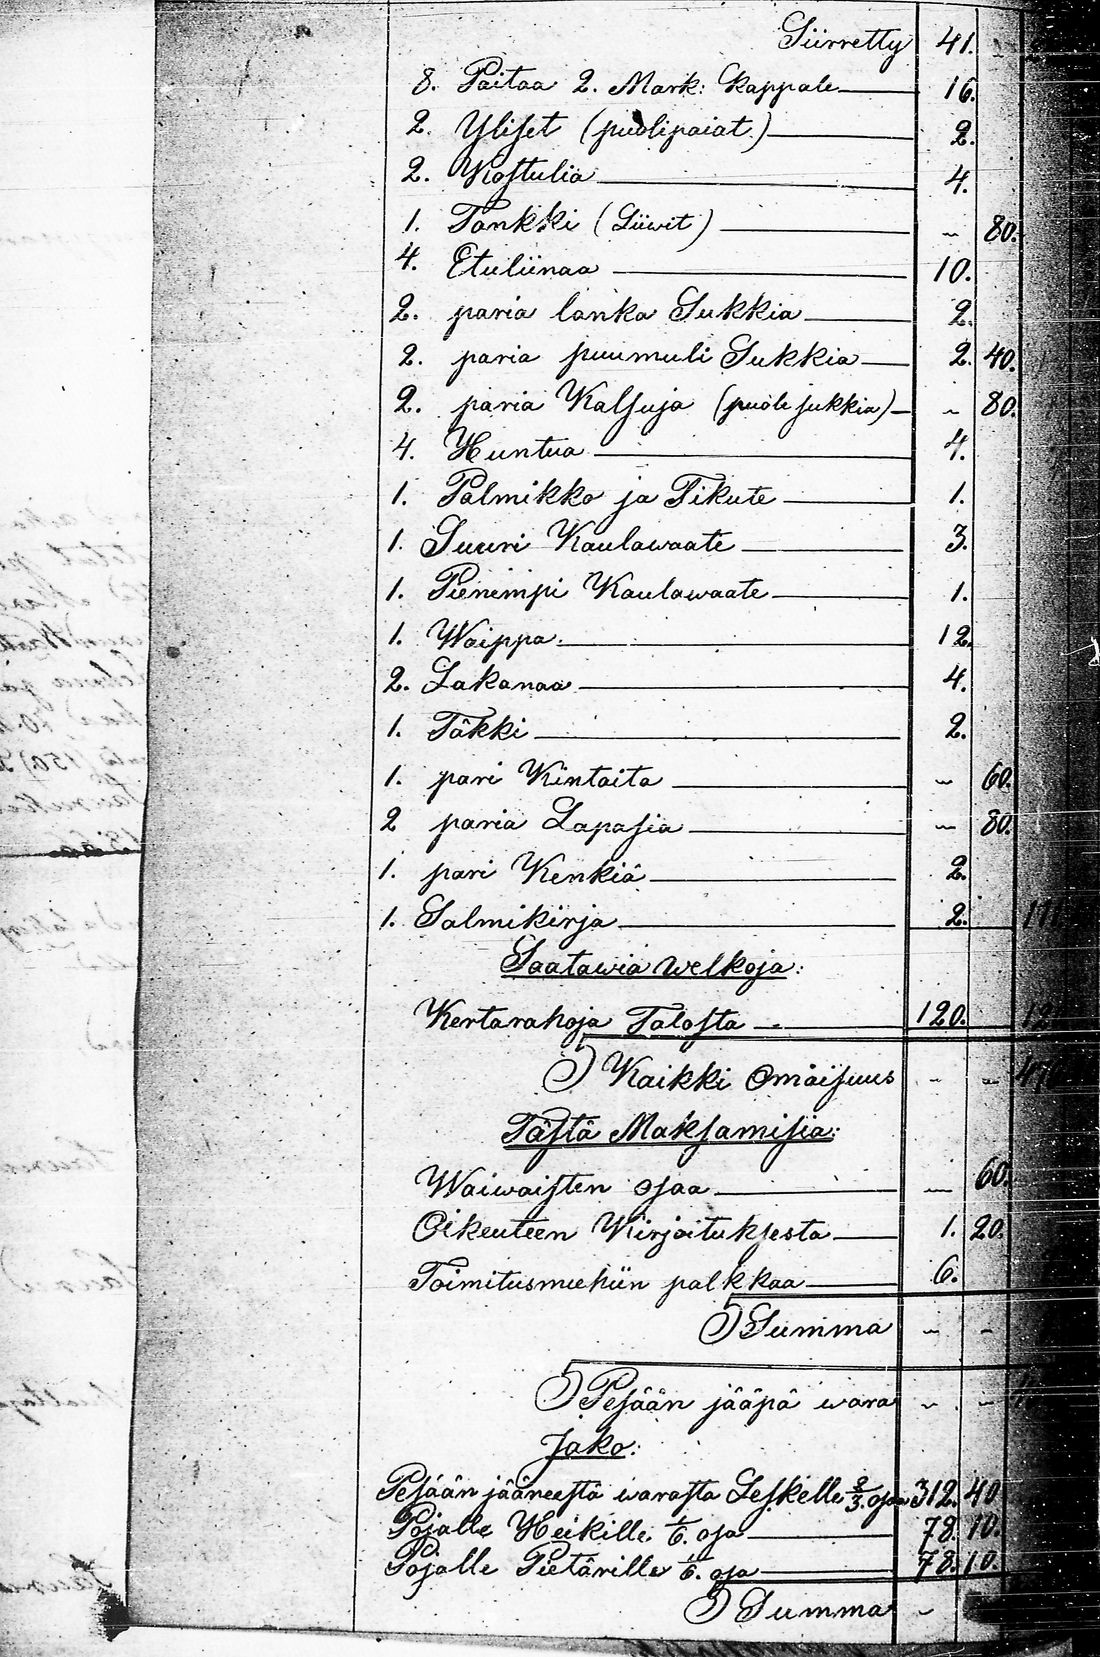 Siirretty 41.
8. Paitaa 2. Mark: Kappale 16.
2. Yliset (puolipaiat.) 2.
2. Kostulia 4.
1. Tankki (Liiwit) " 80.
4. Etuliinaa 10.
2. paria lanka Sukkia 2.
2. paria puumuli Sukkia 2. 40.
2. paria Kalsuja (puole sukkia) " 80.
4. Huntua 4.
1. Palmikko ja Tikute 1.
1. Suuri Kaulawaate 3.
1. Pienempi Kaulawaate 1.
1. Waippa. 12.
2. Lakanaa 4.
1. Täkki 2.
1. pari Kintaita " 60.
2 paria Lapasia " 80.
1. pari Kenkiä 2.
1. Salmikirja 2.
Saatawia welkoja:
Kertarahoja Talosta 120.
Kaikki Omaisuus " "
Tästä Maksamisia:
Waiwaisten osaa " 60.
Oikeuteen Kirjoituksesta 1. 20.
Toimitusmiehiin palkkaa 6.
Summa " "
Pesään jääpä wara " "
Jako:
Pesään jääneestä warasta Leskelle 2/3. osaa 312. 40
Pojalle Heikille 1/6. osa 78. 10.
Pojalle Pietarille 1/6. osa 78. 10.
Summa "